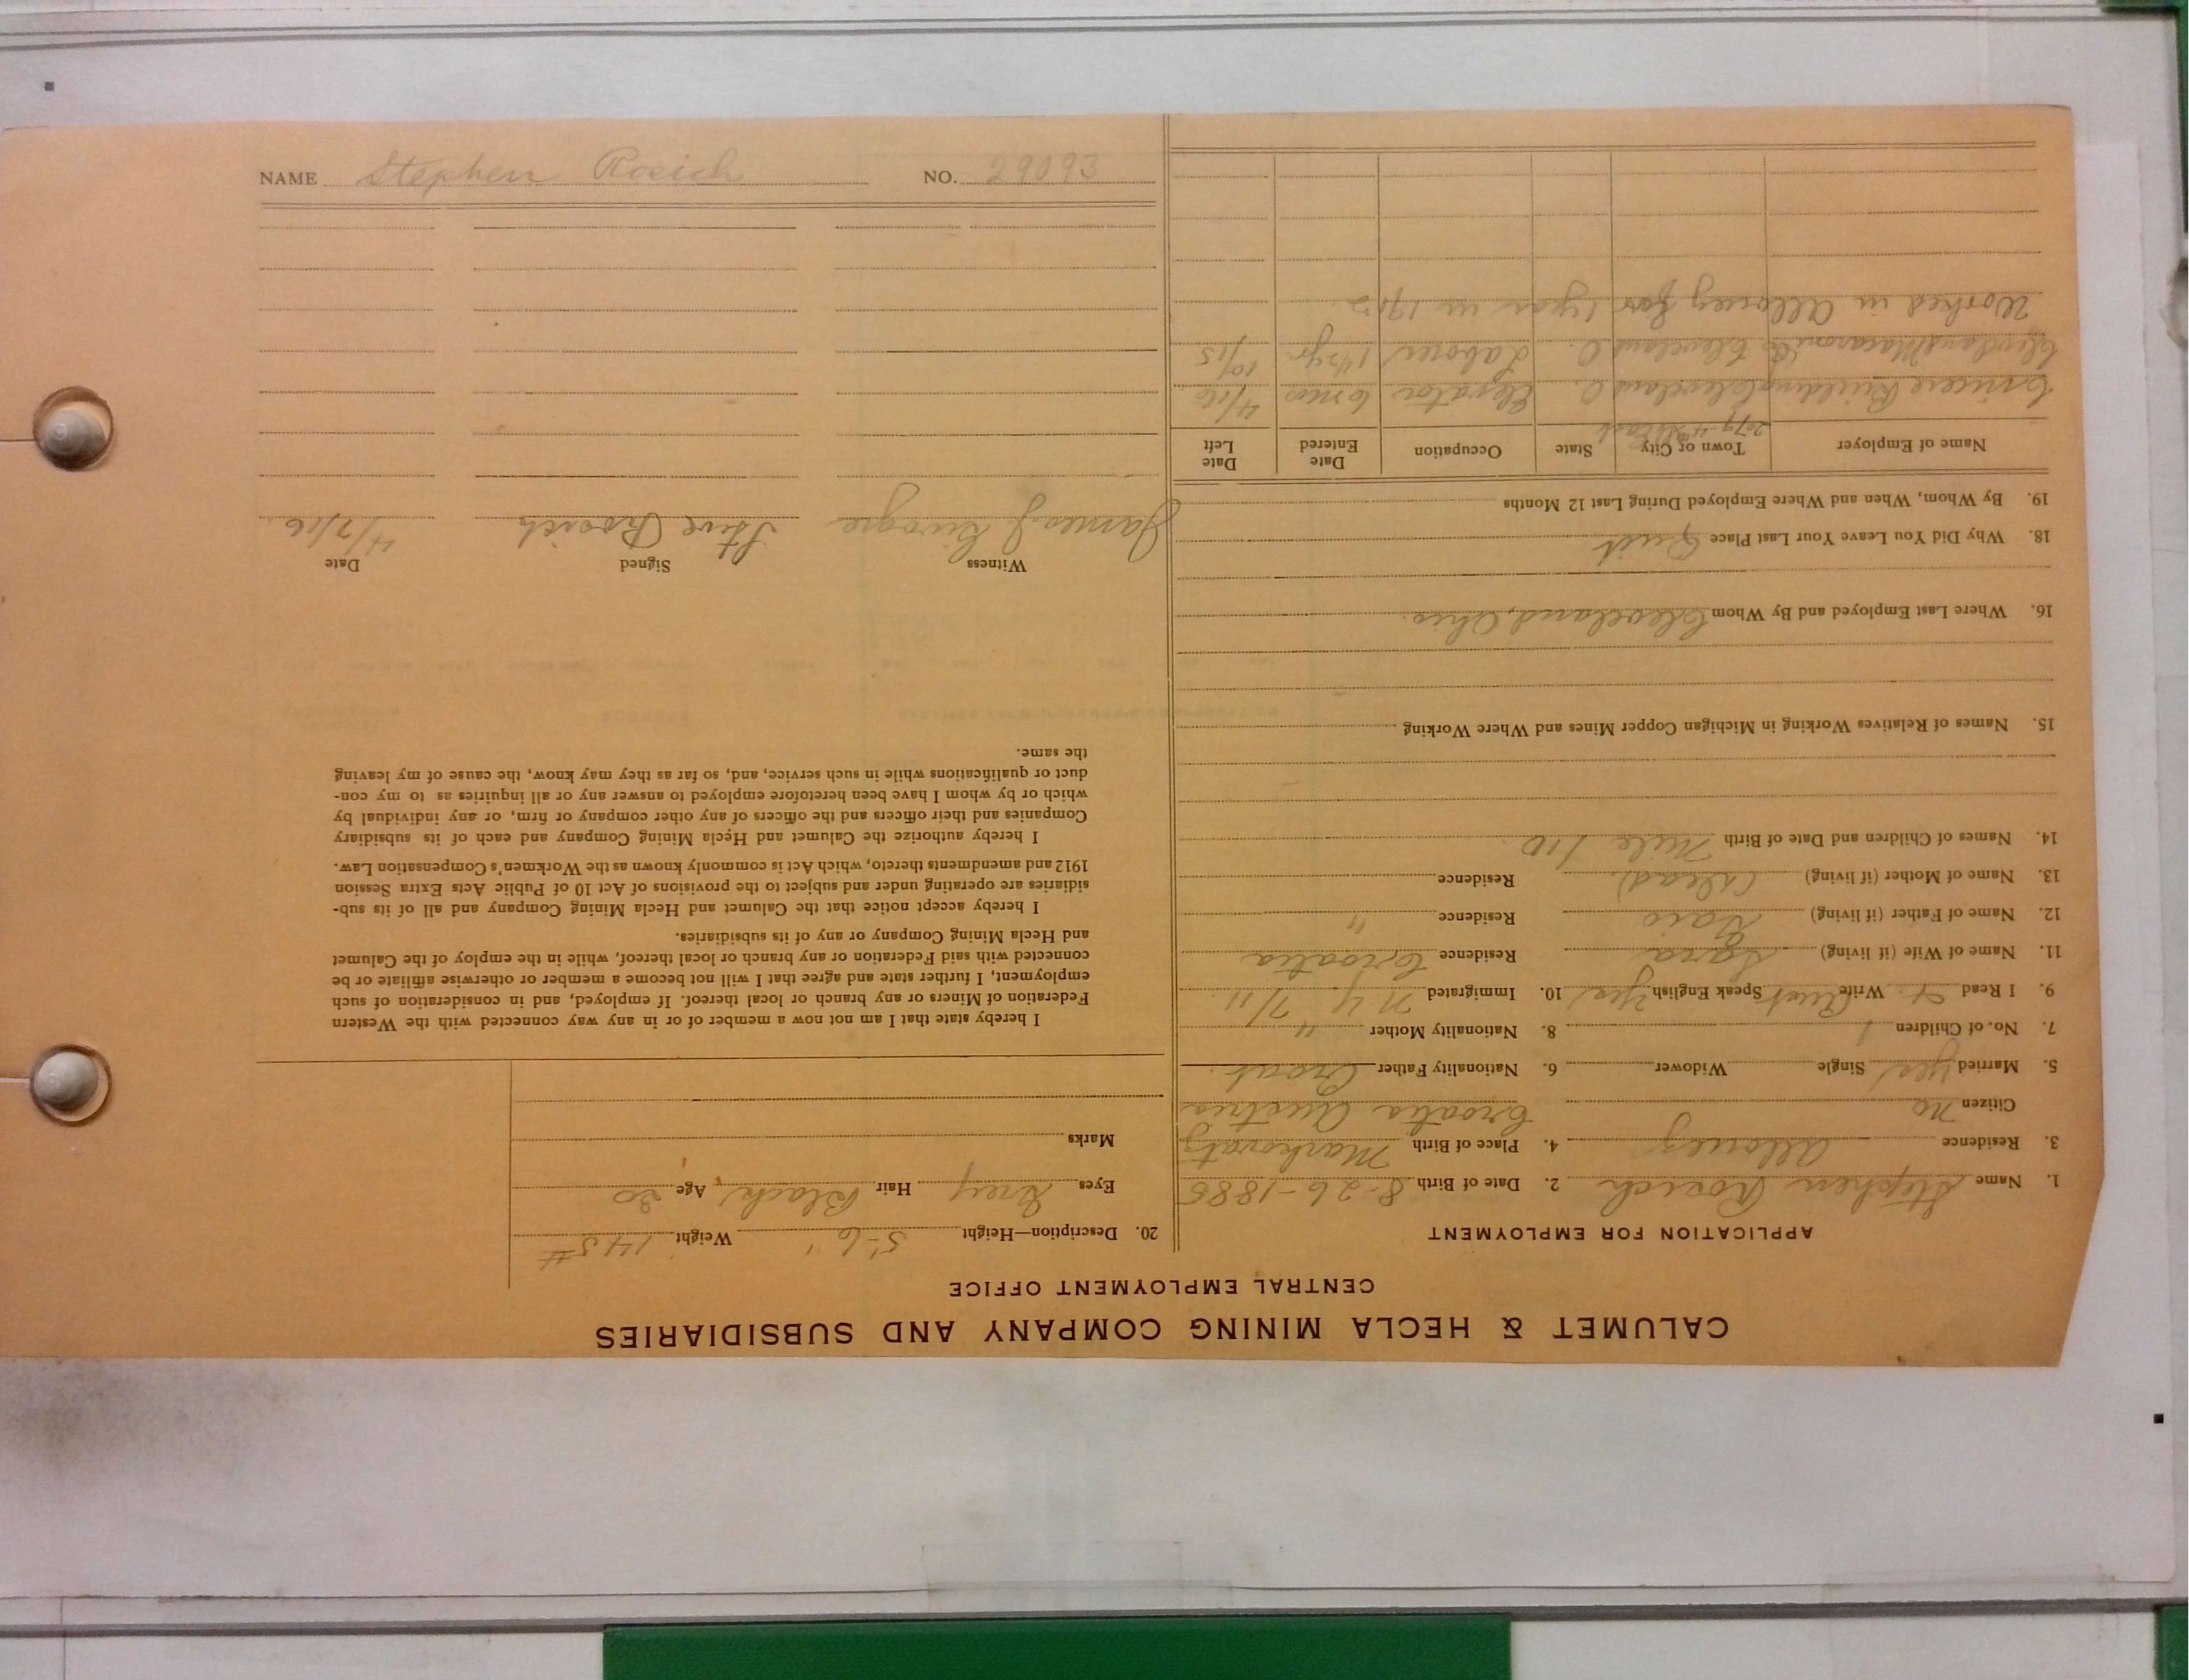 CALUMET & HECLA MINING COMPANY AND SUBSIDIARIES
CENTRAL EMPLOYMENT OFFICE
APPLICATION FOR EMPLOYMENT
1. Name Stephen Rosich 2. Date of Birth 8-26-1885
3. Residence Allouez 4. Place of Birth
Citizen no Croatia Austria
5. Married yes Single Widower 6. Nationality Father Croat.
7. No. of Children 1 8. Nationality Mother "
9. I Read Write Speak English yes 10. Immigrated N.Y. 7/11
11. Name of Wife (if living) Sara Residence Croatia
12. Name of Father (if living) Residence "
13. Name of Mother (if living) (Dead) Residence
14. Names of Children and Date of Birth Mile 1/10
15. Names of Relatives Working in Michigan Copper Mines and Where Working
16. Where Last Employed and By Whom Cleveland, Ohio.
18. Why Did You Leave Your Last Place Quit
19. By Whom, When and Where Employed During Last 12 Months
Name of Employer Town or City State Occupation Date Entered Date Left
Building Cleveland O. Elevator 6 mos 4/16
Cleveland Macaroni Co Cleveland O. Laborer 1 1/2 yr. 10/15
Worked in Allouey for 1 year in 1912.
20. Description—Height 5'-6" Weight 145 #
Eyes Grey Hair Black Age 30
Marks
I hereby state that I am not now a member of or in any way connected with the Western
Federation of Miners or any branch or local thereof. If employed, and in consideration of such
employment, I further state and agree that I will not become a member or otherwise affiliate or be
connected with said Federation or any branch or local thereof, while in the employ of the Calumet
and Hecla Mining Company or any of its subsidiaries.
I hereby accept notice that the Calumet and Hecla Mining Company and all of its sub-
sidiaries are operating under and subject to the provisions of Act 10 of Public Acts Extra Session
1912 and amendments thereto, which Act is commonly known as the Workmen's Compensation Law.
I hereby authorize the Calumet and Hecla Mining Company and each of its subsidiary
Companies and their officers and the officers of any other company or firm, or any individual by
which or by whom I have been heretofore employed to answer any or all inquiries as to my con-
duct or qualifications while in such service, and, so far as they may know, the cause of my leaving
the same.
Witness Signed Date
James J. Steve Rosich 4/7/16
NAME Stephen Rosich NO. 29093